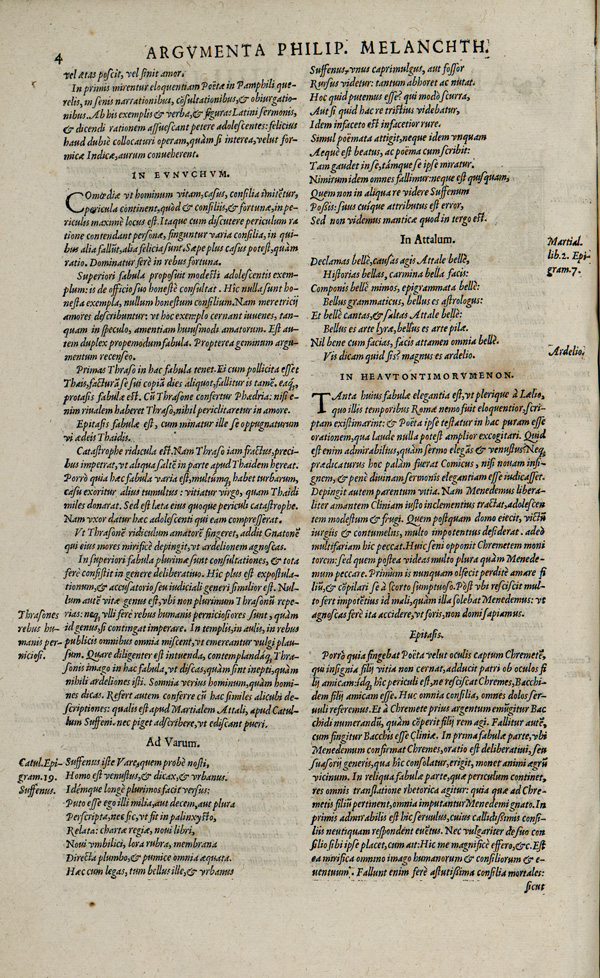 4
ARGVMENTA PHILIP. MELANCHTH.
vel ætas poscit, vel sinit amor.
In primis mirentur eloquentiam Poëtæ in Pamphili que-
relis, in senis narrationibus, cōsultationibus, & obiurgatio-
nibus. Ab his exemplis & verba, & figuras Latini sermonis,
& dicendi rationem assuescant petere adolescentes: felicius
haud dubiè collocaturi operam, quàm si interea, velut for-
micæ Indicæ, aurum conueherent.
IN EVNVCHVM.
COmœdiæ vt hominum vitam, casus, consilia imitētur,
pericula continent, quòd & consiliis, & fortunæ, in pe-
riculis maximè locus est. Itaque cum discutere periculum ra
tione contendant personæ, finguntur varia consilia, in qui-
bus alia fallūt, alia felicia sunt. Sæpe plus casus potest, quàm
ratio. Dominatur ferè in rebus fortuna.
Superiori fabula proposuit modesti adolescentis exem-
plum: is de officio suo honestè consultat. Hîc nulla sunt ho-
nesta exempla, nullum honestum consilium. Nam meretricij
amores describuntur: vt hoc exemplo cernant iuuenes, tan-
quam in speculo, amentiam huiusmodi amatorum. Est au-
tem duplex propemodum fabula. Propterea geminum argu-
mentum recenseo.
Primas Thraso in hac fabula tenet. Ei cum pollicita esset
Thais, facturā se sui copiā dies aliquot, fallitur is tamē. eaq́;
protasis fabulæ est. Cū Thrasone confertur Phædria: nisi e-
nim riualem haberet Thraso, nihil periclitaretur in amore.
Epitasis fabulæ est, cum minatur ille se oppugnaturum
vi ædeis Thaidis.
Catastrophe ridicula est. Nam Thraso iam fractus, preci-
bus impetrat, vt aliqua saltē in parte apud Thaidem hæreat.
Porrò quia hæc fabula varia est, multúmq́; habet turbarum,
casu exoritur alius tumultus: vitiatur virgo, quam Thaidi
miles donarat. Sed est læta eius quoque periculi catastrophe.
Nam vxor datur hæc adolescenti qui eam compresserat.
Vt Thrasonē ridiculum amatorē fingeret, addit Gnatonē
qui eius mores mirificè depingit, vt ardelionem agnoscas.
In superiori fabula plurimæ sunt consultationes, & tota
ferè consistit in genere deliberatiuo. Hîc plus est expostula-
tionum, & accusatorio seu iudiciali generi similior est. Nul-
lum autē vitæ genus est, vbi non plurimum Thrasonū repe-
rias: neq; vlli ferè rebus humanis perniciosiores sunt, quàm
id genus, si contingat imperare. In templis, in aulis, in rebus
publicis omnibus omnia miscent, vt venerantur vulgi plau-
sum. Quare diligenter est intuenda, contemplandáq; Thra-
sonis imago in hac fabula, vt discas, quàm sint inepti, quàm
nihili ardeliones isti. Somnia verius hominum, quàm homi-
nes dicas. Refert autem conferre cū hac similes alicubi de-
scriptiones: qualis est apud Martialem Attali, apud Catul-
lum Suffeni. nec piget adscribere, vt ediscant pueri.
Thrasones
rebus hu-
manis per-
niciosi.
Ad Varum.
Catul. Epi-
gram. 19.
Suffenus.
Suffenus iste Vare, quem probè nosti,
Homo est venustus, & dicax, & vrbanus.
Idémque longè plurimos facit versus:
Puto esse ego illi milia, aut decem, aut plura
Perscripta, nec sic, vt fit in palinxysto,
Relata: chartæ regiæ, noui libri,
Noui vmbilici, lora rubra, membrana
Directa plumbo, & pumice omnia æquata.
Hæc cum legas, tum bellus ille, & vrbanus
Suffenus, vnus caprimulgus, aut fossor
Rursus videtur: tantum abhorret ac nutat.
Hoc quid putemus esse? qui modò scurra,
Aut si quid hac re tristius videbatur,
Idem infaceto est infacetior rure.
Simul poëmata attigit, neque idem vnquam
Aequè est beatus, ac poëma cum scribit:
Tam gaudet in se, támque se ipse miratur.
Nimirum idem omnes fallimur: neque est quisquam,
Quem non in aliqua re videre Suffenum
Possis: suus cuique attributus est error,
Sed non videmus manticæ quod in tergo est.
In Attalum.
Martial.
lib. 2. Epi-
gram. 7.
Declamas bellè, causas agis Attale bellè,
Historias bellas, carmina bella facis:
Componis bellè mimos, epigrammata bellè:
Bellus grammaticus, bellus es astrologus:
Et bellè cantas, & saltas Attale bellè:
Bellus es arte lyræ, bellus es arte pilæ.
Nil bene cum facias, facis attamen omnia bellè.
Vis dicam quid sis? magnus es ardelio.
Ardelio.
IN HEAVTONTIMORVMENON.
TAnta huius fabulæ elegantia est, vt plerique à Lælio,
quo illis temporibus Romæ nemo fuit eloquentior, scri-
ptam existimarint: & Poëta ipse testatur in hac puram esse
orationem, qua laude nulla potest amplior excogitari. Quid
est enim admirabilius, quàm sermo elegās & venustus? Neq;
prædicaturus hoc palàm fuerat Comicus, nisi nouam insi-
gnem, & penè diuinam sermonis elegantiam esse iudicasset.
Depingit autem parentum vitia. Nam Menedemus libera-
liter amantem Cliniam iusto inclementius tractat, adolescen
tem modestum & frugi. Quem postquam domo eiecit, victū
iurgiis & contumeliis, multo impotentius desiderat. adeò
multifariam hîc peccat. Huic seni opponit Chremetem moni
torem: sed quem postea videas multo plura quàm Menede-
mum peccare. Primùm is nunquam olfecit perditè amare fi
liū, & cōpilari se à scorto sumptuoso. Post vbi resciscit mul-
to fert impotētius id mali, quàm illa solebat Menedemus: vt
agnoscas ferè ita accidere, vt foris, non domi sapiamus.
Epitasis.
Porrò quia fingebat Poëta velut oculis captum Chremetē,
qui insignia filij vitia non cernat, adducit patri ob oculos fi
lij amicam: idq́; hîc periculi est, ne resciscat Chremes, Bacchi-
dem filij amicam esse. Huc omnia consilia, omnes dolos ser-
uuli referemus. Et à Chremete prius argentum emūgitur Bac
chidi numerandū, quàm cœperit filij rem agi. Fallitur autē,
cum fingitur Bacchis esse Cliniæ. In prima fabulæ parte, vbi
Menedemum confirmat Chremes, oratio est deliberatiui, seu
suasorij generis, qua hîc consolatur, erigit, monet animi ægrū
vicinum. In reliqua fabulæ parte, quæ periculum continet,
res omnis translatione rhetorica agitur: quia quæ ad Chre-
metis filiū pertinent, omnia imputantur Menedemi gnato. In
primis admirabilis est hîc seruulus, cuius callidissimis consi-
liis neutiquam respondent euētus. Nec vulgariter de suo con
silio sibi ipse placet, cum ait: Hîc me magnificè effero, &c. Est
ea mirifica omnino imago humanorum & consiliorum & e-
uentuum. Fallunt enim ferè astutissima consilia mortales:
sicut